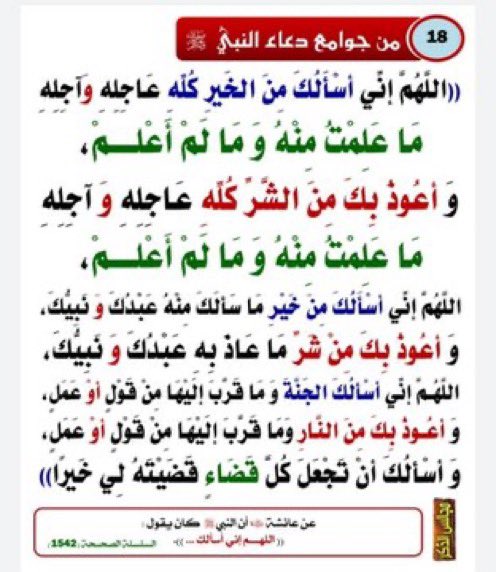 18
من جوامع دعاء النبي ﷺ
((اللَّهُمَّ إنِّي أسْألُكَ مِنَ الخَيرِ كُلِّه عَـاجِلِه وَآجِلِه
مَا عَلِمْتُ مِنْهُ وَ مَا لَمْ أَعْلَـــمْ،
وَ أعُوذُ بِكَ مِنَ الشَّرِّ كُلِّه عَـاجِلِه وَ آجِلِه
مَا عَلِمْتُ مِنْهُ وَ مَا لَمْ أَعْلَـــمْ،
اللهُمَّ إنِّي أسْألُكَ مِنْ خَيْرِ مَا سَألَكَ مِنْهُ عَبْدُكَ وَ نَبِيُّكَ،
وَ أعُوذُ بِكَ مِنْ شَرِّ مَا عاذ به عَبْدُكَ وَ نَبِيُّكَ،
اللهُـمَّ إنِّي أسْألُكَ الجَنَّةَ وَ مَا قَرَّبَ إلَيْهَا مِنْ قَوْلٍ أوْ عَمَلٍ،
وَ أعُـوذُ بِكَ مِنَ النَّارِ وَمَا قَرَّبَ إلَيْهَا مِنْ قَوْلٍ أوْ عَمَلٍ،
وَ أسْألُكَ أنْ تَجْعَلَ كُلَّ قَضَاءٍ قَضَيْتَهُ لِي خَيرًا))
مجلس الذكر
عن عائشة أن النبي ﷺ كان يقول:
((اللهـــم إني أسألك ...))،
السلسلة الصحيحة (1542)